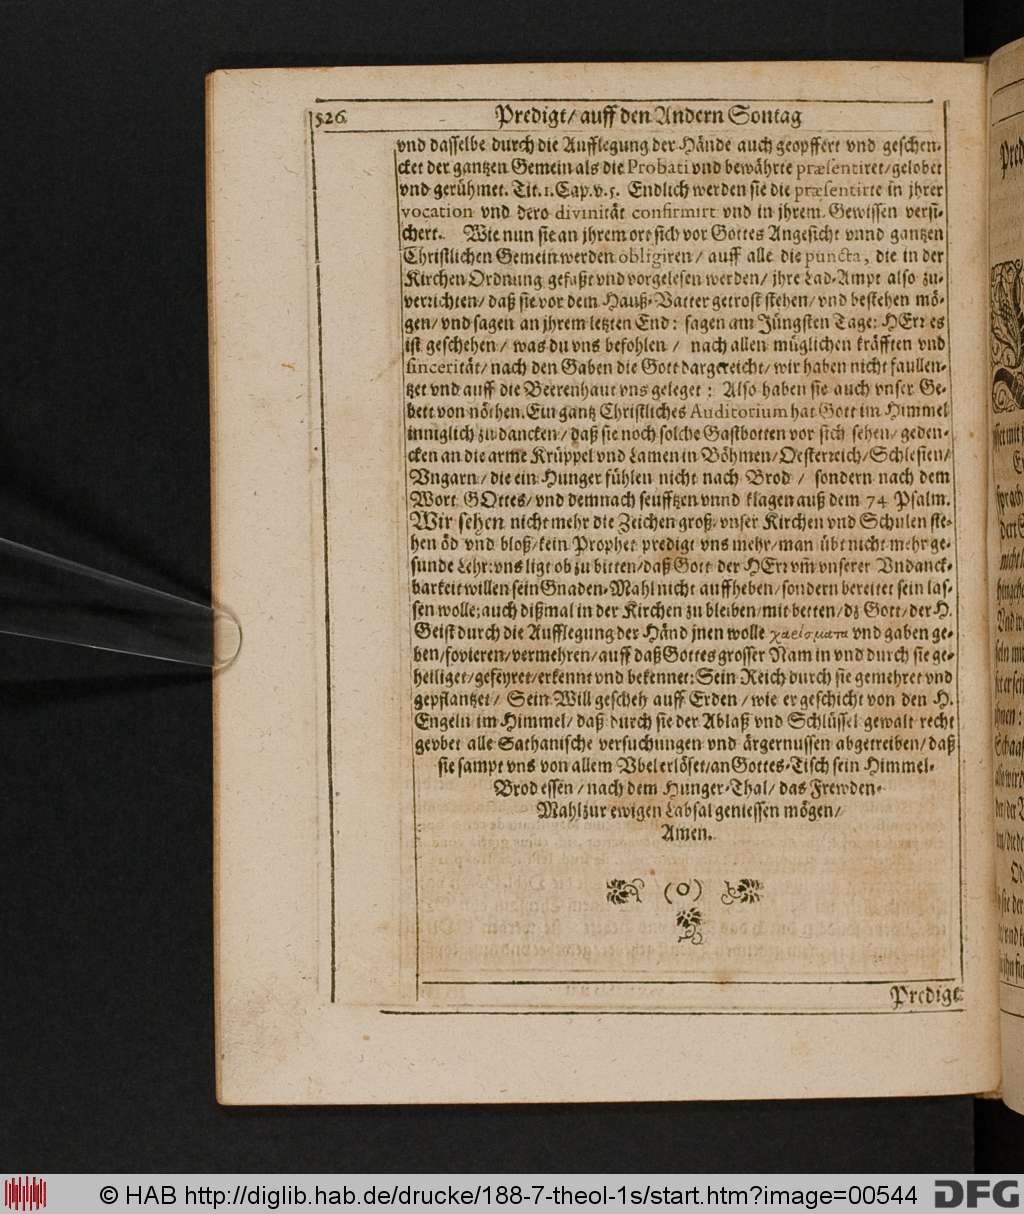 526. Predigt/ auff den Andern Sontag
vnd dasselbe durch die Aufflegung der Hände auch geopffert vnd geschen-
cket der gantzen Gemein als die Probati vnd bewährte præsentiret/gelobet
vnd gerühmet. Tit.1.Cap.v.5. Endlich werden sie die præsentirte in jhrer
vocation vnd dero divinität confirmirt vnd in jhrem Gewissen versi-
chert. Wie nun sie an jhrem ort sich vor Gottes Angesicht vnnd gantzen
Christlichen Gemein werden obligiren/ auff alle die puncta, die in der
Kirchen Ordnung gefaßt vnd vorgelesen werden/ jhre Lad-Ampt also zu-
verrichten/ daß sie vor dem Hauß-Vatter getrost stehen/ vnd bestehen mö-
gen/ vnd sagen an jhrem letzten End: sagen am Jüngsten Tage: HErr es
ist geschehen/ was du vns befohlen/ nach allen müglichen kräfften vnd
sincerität/ nach den Gaben die Gott dargereicht/ wir haben nicht faullen-
tzet vnd auff die Beerenhaut vns geleget: Also haben sie auch vnser Ge-
bett von nöthen. Ein gantz Christliches Auditorium hat Gott im Himmel
inniglich zu dancken/ daß sie noch solche Gastbotten vor sich sehen/ geden-
cken an die arme Krüppel vnd Lamen in Böhmen/Oesterreich/Schlesien/
Vngarn/ die ein Hunger fühlen nicht nach Brod/ sondern nach dem
Wort GOttes/ vnd demnach seufftzen vnnd klagen auß dem 74 Psalm.
Wir sehen nicht mehr die Zeichen groß/ vnser Kirchen vnd Schulen ste-
hen öd vnd bloß/ kein Prophet predigt vns mehr/ man übt nicht mehr ge-
sunde Lehr: vns ligt ob zu bitten/ daß Gott der HErr vm̃ vnserer Vndanck-
barkeit willen sein Gnaden-Mahl nicht auffheben/ sondern bereitet sein las-
sen wolle; auch dißmal in der Kirchen zu bleiben/ mit betten/ dz Gott/ der H.
Geist durch die Aufflegung der Händ jnen wolle χαρίσματα vnd gaben ge-
ben/fovieren/vermehren/ auff daß Gottes grosser Nam in vnd durch sie ge-
heiliget/ gefeyret/ erkennt vnd bekennet: Sein Reich durch sie gemehret vnd
gepflantzet/ Sein Will gescheh auff Erden/ wie er geschicht von den H.
Engeln im Himmel/ daß durch sie der Ablaß vnd Schlüssel gewalt recht
geübet alle Sathanische versuchungen vnd ärgernussen abgetreiben/ daß
sie sampt vns von allem Vbel erlöset/an Gottes-Tisch sein Himmel-
Brod essen/ nach dem Hunger-Thal/ das Frewden-
Mahl zur ewigen Labsal geniessen mögen/
Amen.
(o)
Predigt
© HAB http://diglib.hab.de/drucke/188-7-theol-1s/start.htm?image=00544 DFG